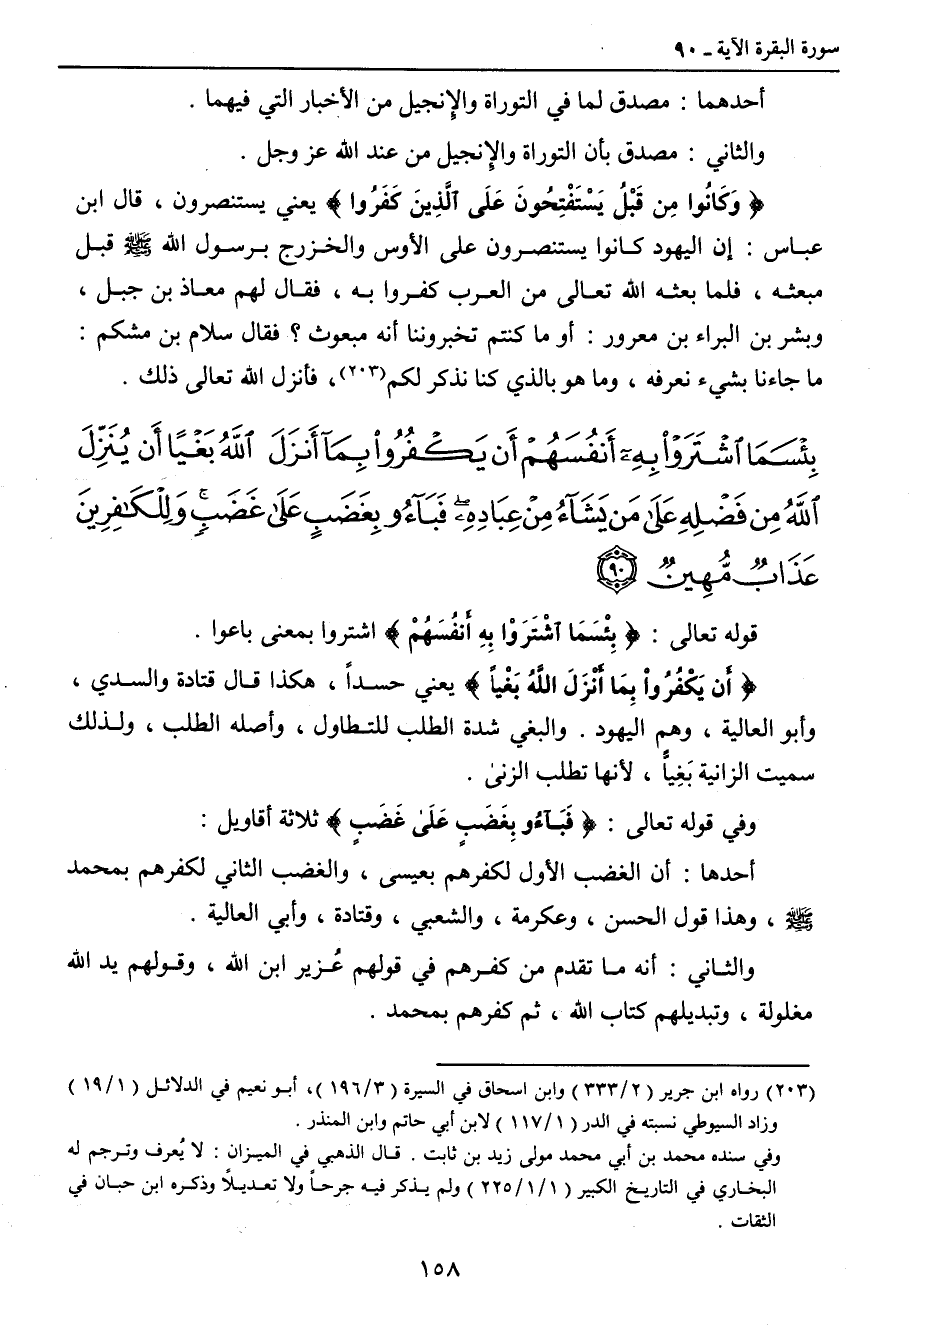 سورة البقرة الآية ـ ٩٠
أحدهما : مصدق لما في التوراة والإنجيل من الأخبار التي فيهما .
والثاني : مصدق بأن التوراة والإنجيل من عند الله عز وجل .
﴿ وَكَانُوا مِن قَبْلُ يَسْتَفْتِحُونَ عَلَى ٱلَّذِينَ كَفَرُوا ﴾ يعني يستنصرون ، قال ابن
عباس : إن اليهود كانوا يستنصرون على الأوس والخزرج برسول الله ﷺ قبل
مبعثه ، فلما بعثه الله تعالى من العرب كفروا به ، فقال لهم معاذ بن جبل ،
وبشر بن البراء بن معرور : أو ما كنتم تخبروننا أنه مبعوث ؟ فقال سلام بن مشكم :
ما جاءنا بشيء نعرفه ، وما هو بالذي كنا نذكر لكم(٢٠٣)، فأنزل الله تعالى ذلك .
بِئْسَمَا ٱشْتَرَوْا۟ بِهِۦٓ أَنفُسَهُمْ أَن يَكْفُرُوا۟ بِمَآ أَنزَلَ ٱللَّهُ بَغْيًا أَن يُنَزِّلَ
ٱللَّهُ مِن فَضْلِهِۦ عَلَىٰ مَن يَشَآءُ مِنْ عِبَادِهِۦ ۖ فَبَآءُو بِغَضَبٍ عَلَىٰ غَضَبٍ ۚ وَلِلْكَٰفِرِينَ
عَذَابٌ مُّهِينٌ ٩٠
قوله تعالى : ﴿ بِئْسَمَا ٱشْتَرَوْا بِهِ أَنفُسَهُمْ ﴾ اشتروا بمعنى باعوا .
﴿ أَن يَكْفُرُواْ بِمَا أَنْزَلَ اللَّهُ بَغْياً ﴾ يعني حسداً ، هكذا قال قتادة والسدي ،
وأبو العالية ، وهم اليهود . والبغي شدة الطلب للتطاول ، وأصله الطلب ، ولذلك
سميت الزانية بَغِياً ، لأنها تطلب الزنىٰ .
وفي قوله تعالى : ﴿ فَبَآءُو بِغَضَبٍ عَلَىٰ غَضَبٍ ﴾ ثلاثة أقاويل :
أحدها : أن الغضب الأول لكفرهم بعيسى ، والغضب الثاني لكفرهم بمحمد
ﷺ ، وهذا قول الحسن ، وعكرمة ، والشعبي ، وقتادة ، وأبي العالية .
والثاني : أنه ما تقدم من كفرهم في قولهم عُزير ابن الله ، وقولهم يد الله
مغلولة ، وتبديلهم كتاب الله ، ثم كفرهم بمحمد .
(٢٠٣) رواه ابن جرير ( ٣٣٣/٢ ) وابن اسحاق في السيرة ( ١٩٦/٣ )، أبو نعيم في الدلائل ( ١٩/١ )
وزاد السيوطي نسبته في الدر ( ١١٧/١ ) لابن أبي حاتم وابن المنذر .
وفي سنده محمد بن أبي محمد مولى زيد بن ثابت . قال الذهبي في الميزان : لا يُعرف وترجم له
البخاري في التاريخ الكبير ( ٢٢٥/١/١ ) ولم يذكر فيه جرحاً ولا تعديلاً وذكره ابن حبان في
الثقات .
١٥٨